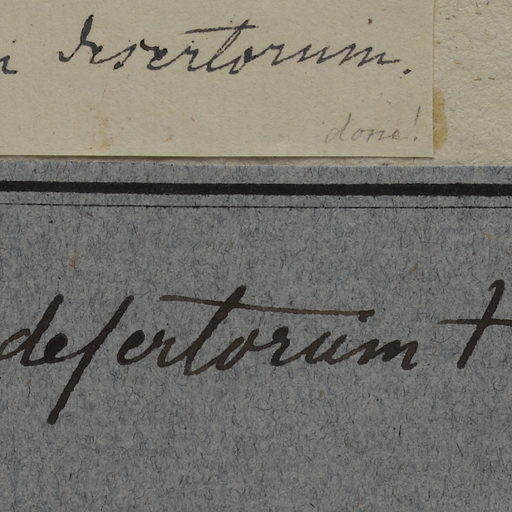 desertorum.
done!
deſertorum †